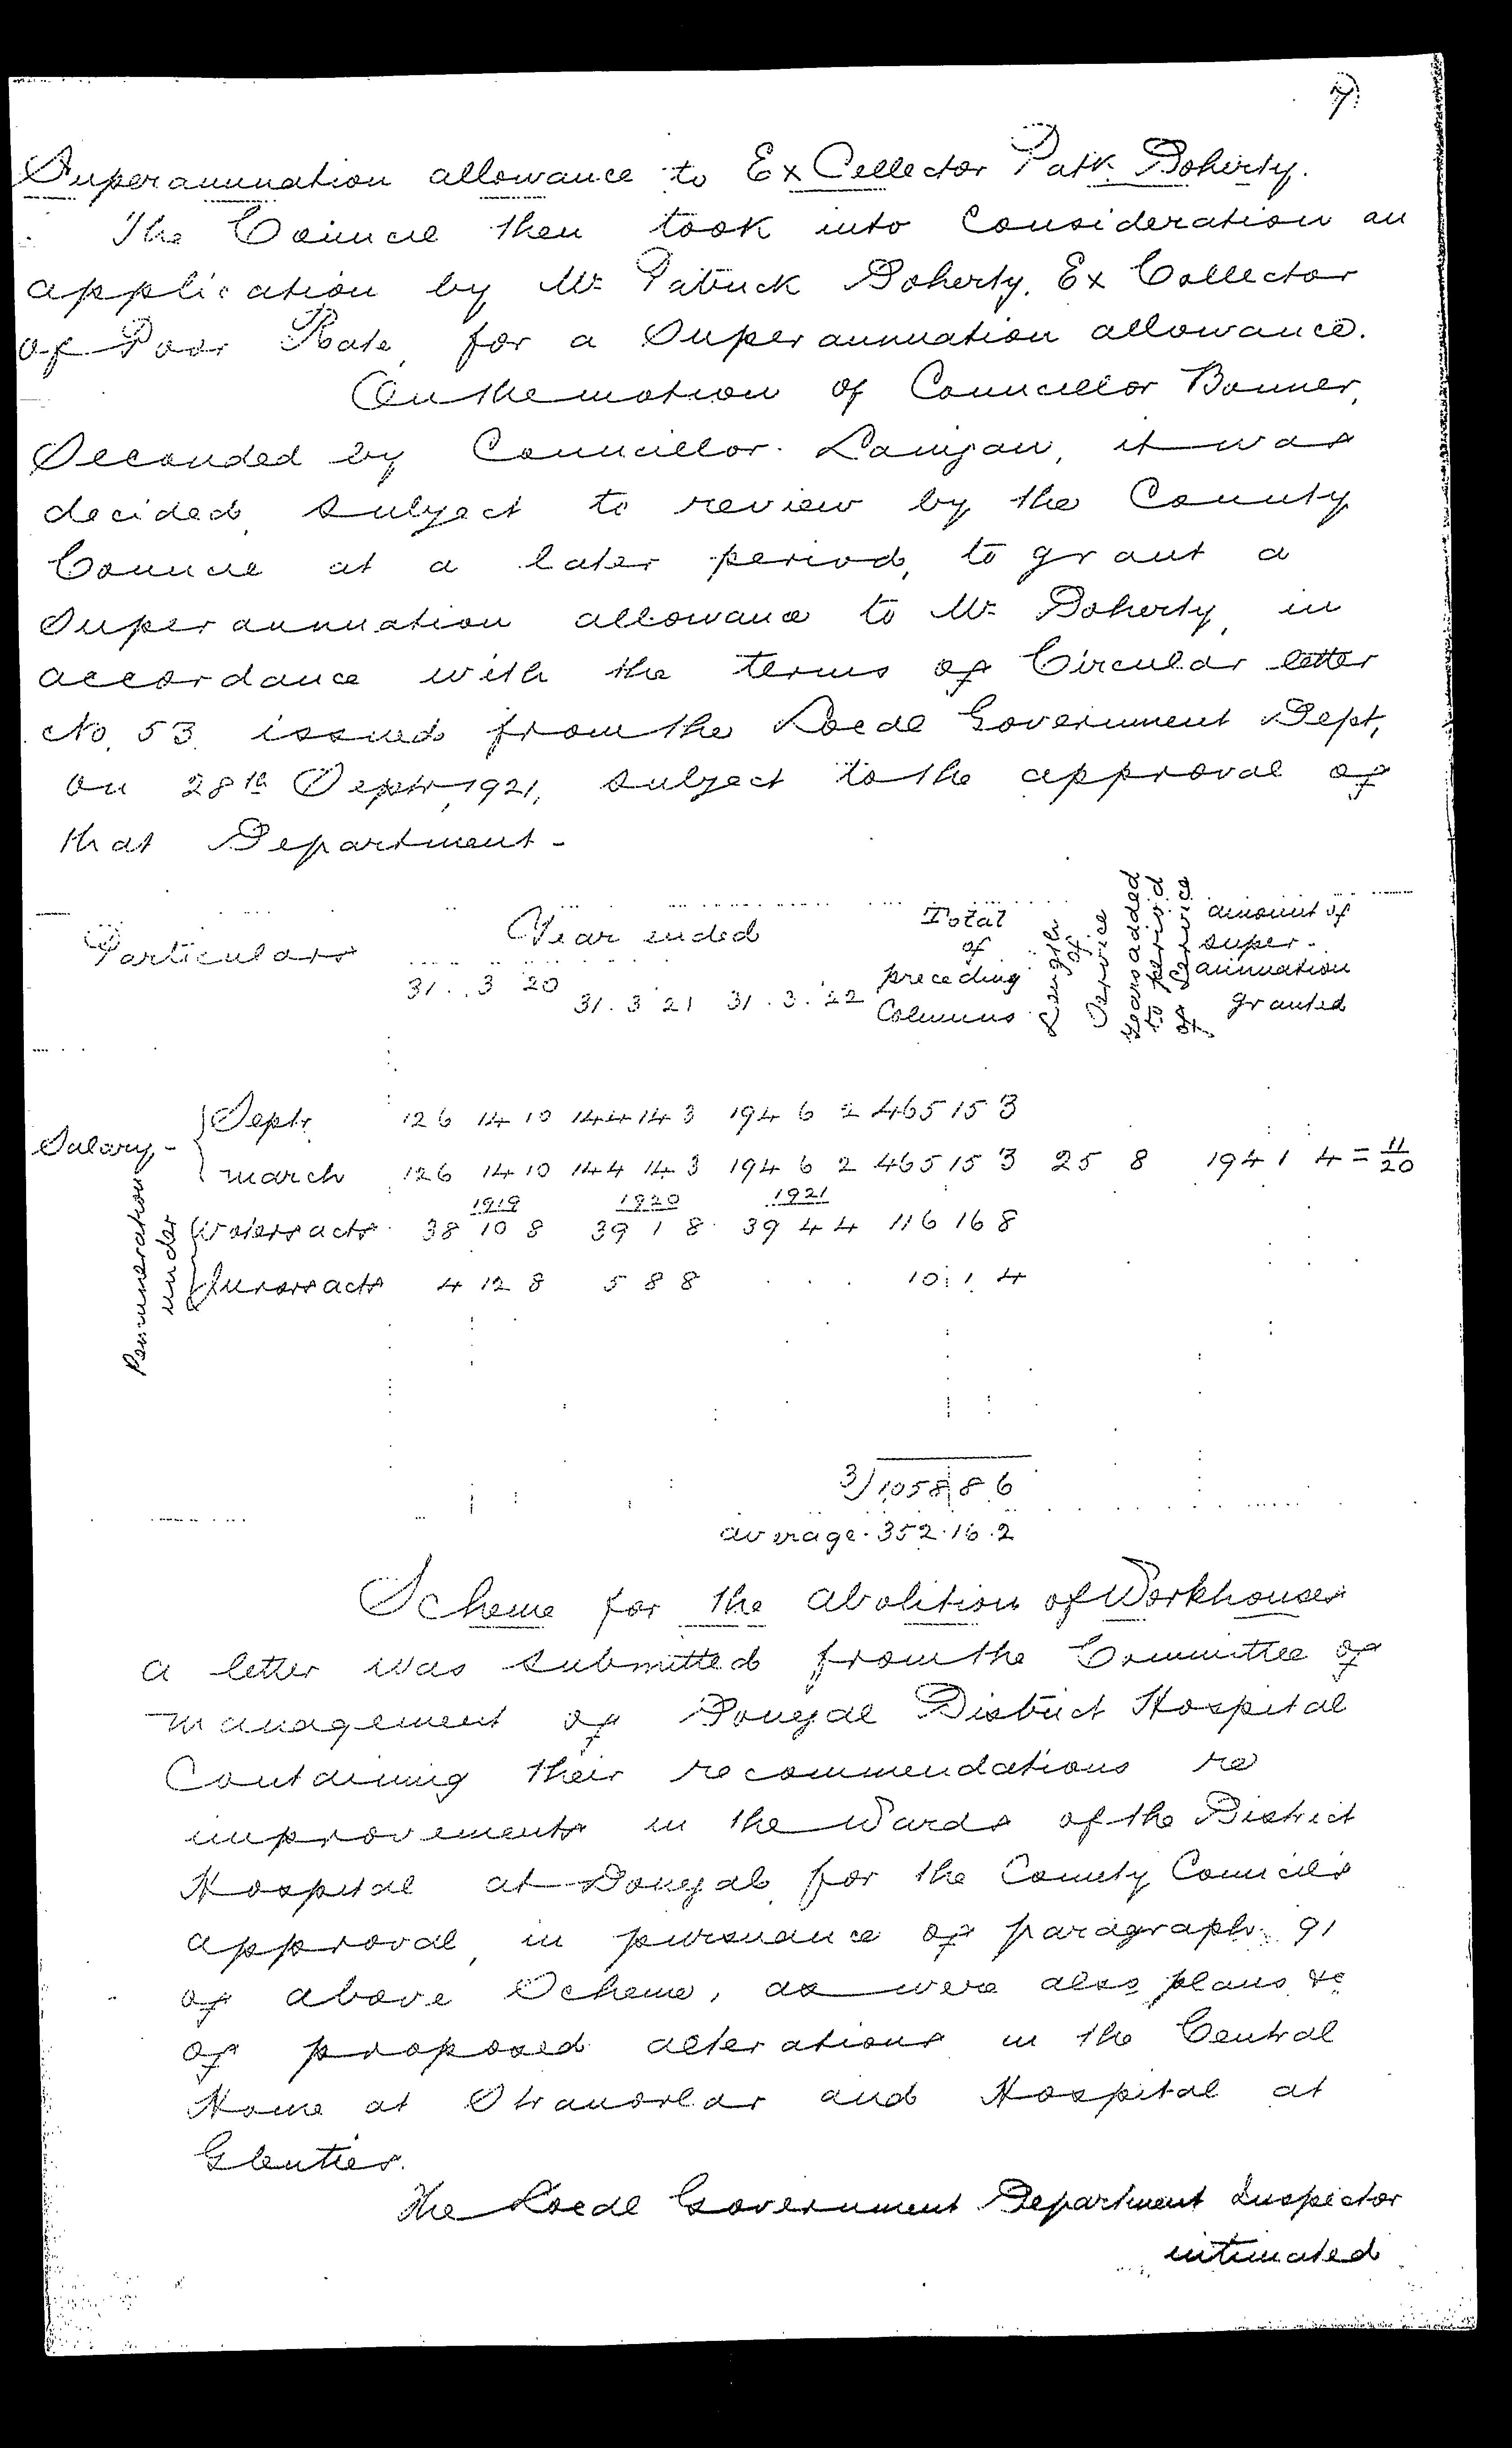 7
Superannuation allowance to Ex Collector Patk Doherty.
The Council then took into consideration an
application by Mr Patrick Doherty, Ex Collector
of Poor Rate, for a Superannuation allowance.
On the motion of Councillor Bonner,
Seconded by Councillor Lanigan, it was
decided, subject to review by the County
Council at a later period, to grant a
Superannuation allowance to Mr Doherty, in
accordance with the terms of Circular letter
No. 53 issued from the Local Government Dept,
on 28th Septr, 1921, subject to the approval of
that Department -
Particulars Year ended Total of preceding Columns Length of Service Years added to period of Service amount of super-annuation granted
31. 3 20 31. 3 21 31. 3. 22
Salary - { Septr 126 14 10 144 14 3 194 6 2 465 15 3
{ March 126 14 10 144 14 3 194 6 2 465 15 3 25 8 194 1 4 = 11/20
1919 1920 1921
Remuneration under { Voters acts 38 10 8 39 1 8 39 4 4 116 16 8
{ Jurors acts 4 12 8 5 8 8 . . . 10 1 4
3) 1058 8 6
average. 352. 16. 2
Scheme for the abolition of Workhouses
a letter was submitted from the Committee of
Management of Donegal District Hospital
Containing their recommendations re
improvements in the Wards of the District
Hospital at Donegal, for the County Council's
approval, in pursuance of paragraph 91
of above Scheme, as were also plans &c
of proposed alterations in the Central
Home at Stranorlar and Hospital at
Glenties.
The Local Government Department Inspector
intimated